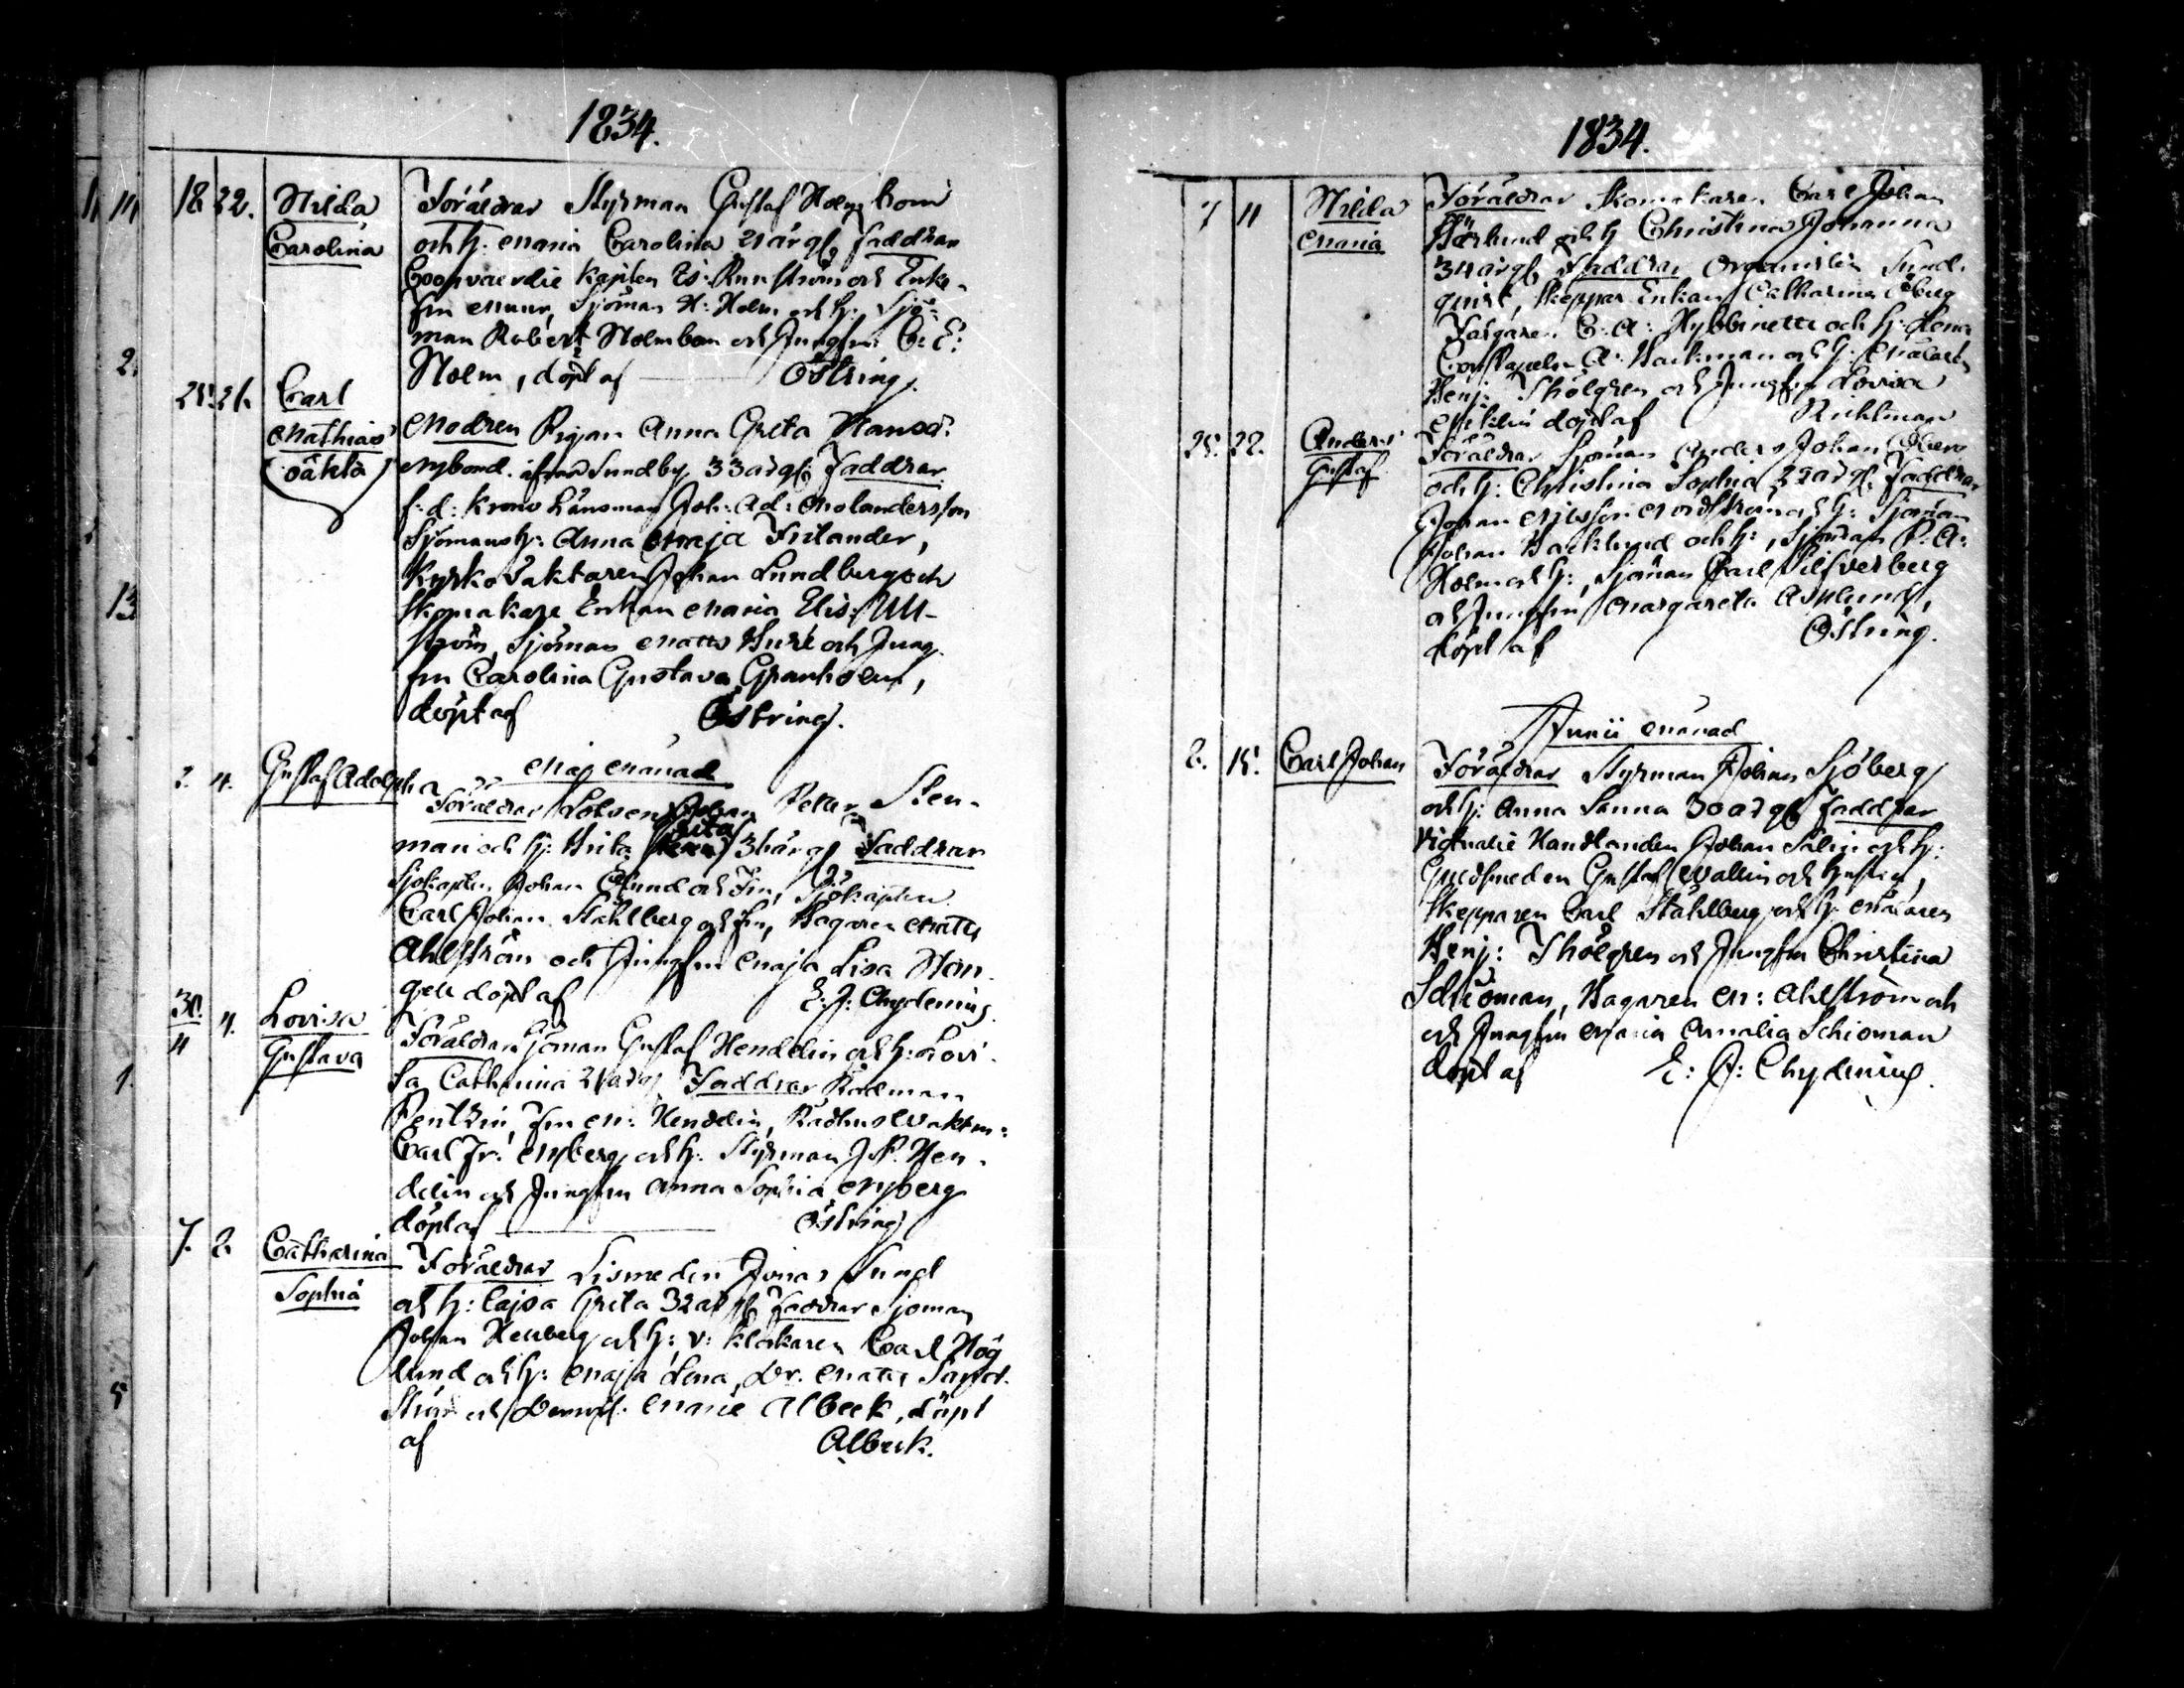 1834.
18 22. Hilda Föräldrar Styrman Gustaf Holmstrom
Carolina och h: Maria Carolina 21 årg. faddrar
Coopvaerdie Kapten Es: Runström och Enke-
fru Sjöman H: Holm och h: Sjö-
man Robert Holmbom och Jungfru C: E:
Holm, döpt af Östring.
25. 26. Carl
Mathias Modren Pigan Anna Greta Hansd:
(oäkta) Nybond. ifrån Sundby 33 årg: Faddrar
f: d: Krono Länsman Joh: Ad: Molandersson
Sjömansh: Anna Maja Finlander,
Kyrko Vaktaren Johan Lundberg och
Skomakare Enkan Maria Elis: Ull-
ström, Sjöman Matts Buré och Jung-
fru Carolina Gustava Granholm,
döpt af Östring.
Maj Månad
2. 4. Gustaf Adolph Föräldrar Lotsen Johan Petter Sten-
man och h: Brita Greta 36 årg Faddrar
Sjökapten Johan Öhlund och Fru, Sjökapten
Carl Johan Ståhlberg och Fru, Bagaren Matts
Ahlström och Jungfru Maja Lisa Hon-
gell döpt af E: J: Chydenius.
30/4 4. Lovisa Föräldrar Sjöman Gustaf Hendelin och h: Lovi-
Gustava sa Cathrina 21 årg Faddrar Rådman
Pentzin, Fru M: Hendelin, Rådhus Vaktm:
Carl Fr: Nyberg och h: Styrman J. P. Hen-
delin och Jungfru Anna Sophia Nyberg
döpt af Östring
7. 8. Catharina Föräldrar Lismeden Jonas Sund
Sophia och h: Cajsa Greta 32 årg Faddrar Sjöman
Johan Hellberg och h: v: Klockaren Carl Hög
lund och h: Maja Lena, Dr. Matts Sand-
ström och Demois: Marie Albeck, döpt
af Albeck.
1834.
7 11 Hilda Föräldrar Skomakaren Carl Johan
Maria och h Christina Johanna
34 årg Faddrar Organisten Sund-
qvist, Skeppar Enkan Catharina Öberg
Färgaren C: A: Hybbinette och h: Lena
Constapeln A: Backman och h: Målaren
Benj: Thölgren och Jungfru Lovisa
döpt af Kihlman
25. 22. Anders Föräldrar Sjöman Anders Johan
Gustaf och h: Christina Sophia 22 årg. Faddrar
Johan Ericsson Nordström och h: Sjöman
Johan Backlund och h:, Sjöman P: A:
Holm och h:, Sjöman Carl Silfverberg
och Jungfru Margareta Asplund,
döpt af Östring.
Junii Månad
8. 15. Carl Johan Föräldrar Styrman Johan Sjöberg
och h: Anna Sanna 30 årg Faddrar
Victualie Handlanden Johan Salin och h:
Guldsmeden Gustaf Wallin och hustru,
Skepparen Carl Ståhlberg och h: Målaren
Benj: Thölgren och Jungfru Christina
Schiöman, Bagaren M: Ahlström och
och Jungfru Maria Amalia Schioman
döpt af E: J: Chydenius.